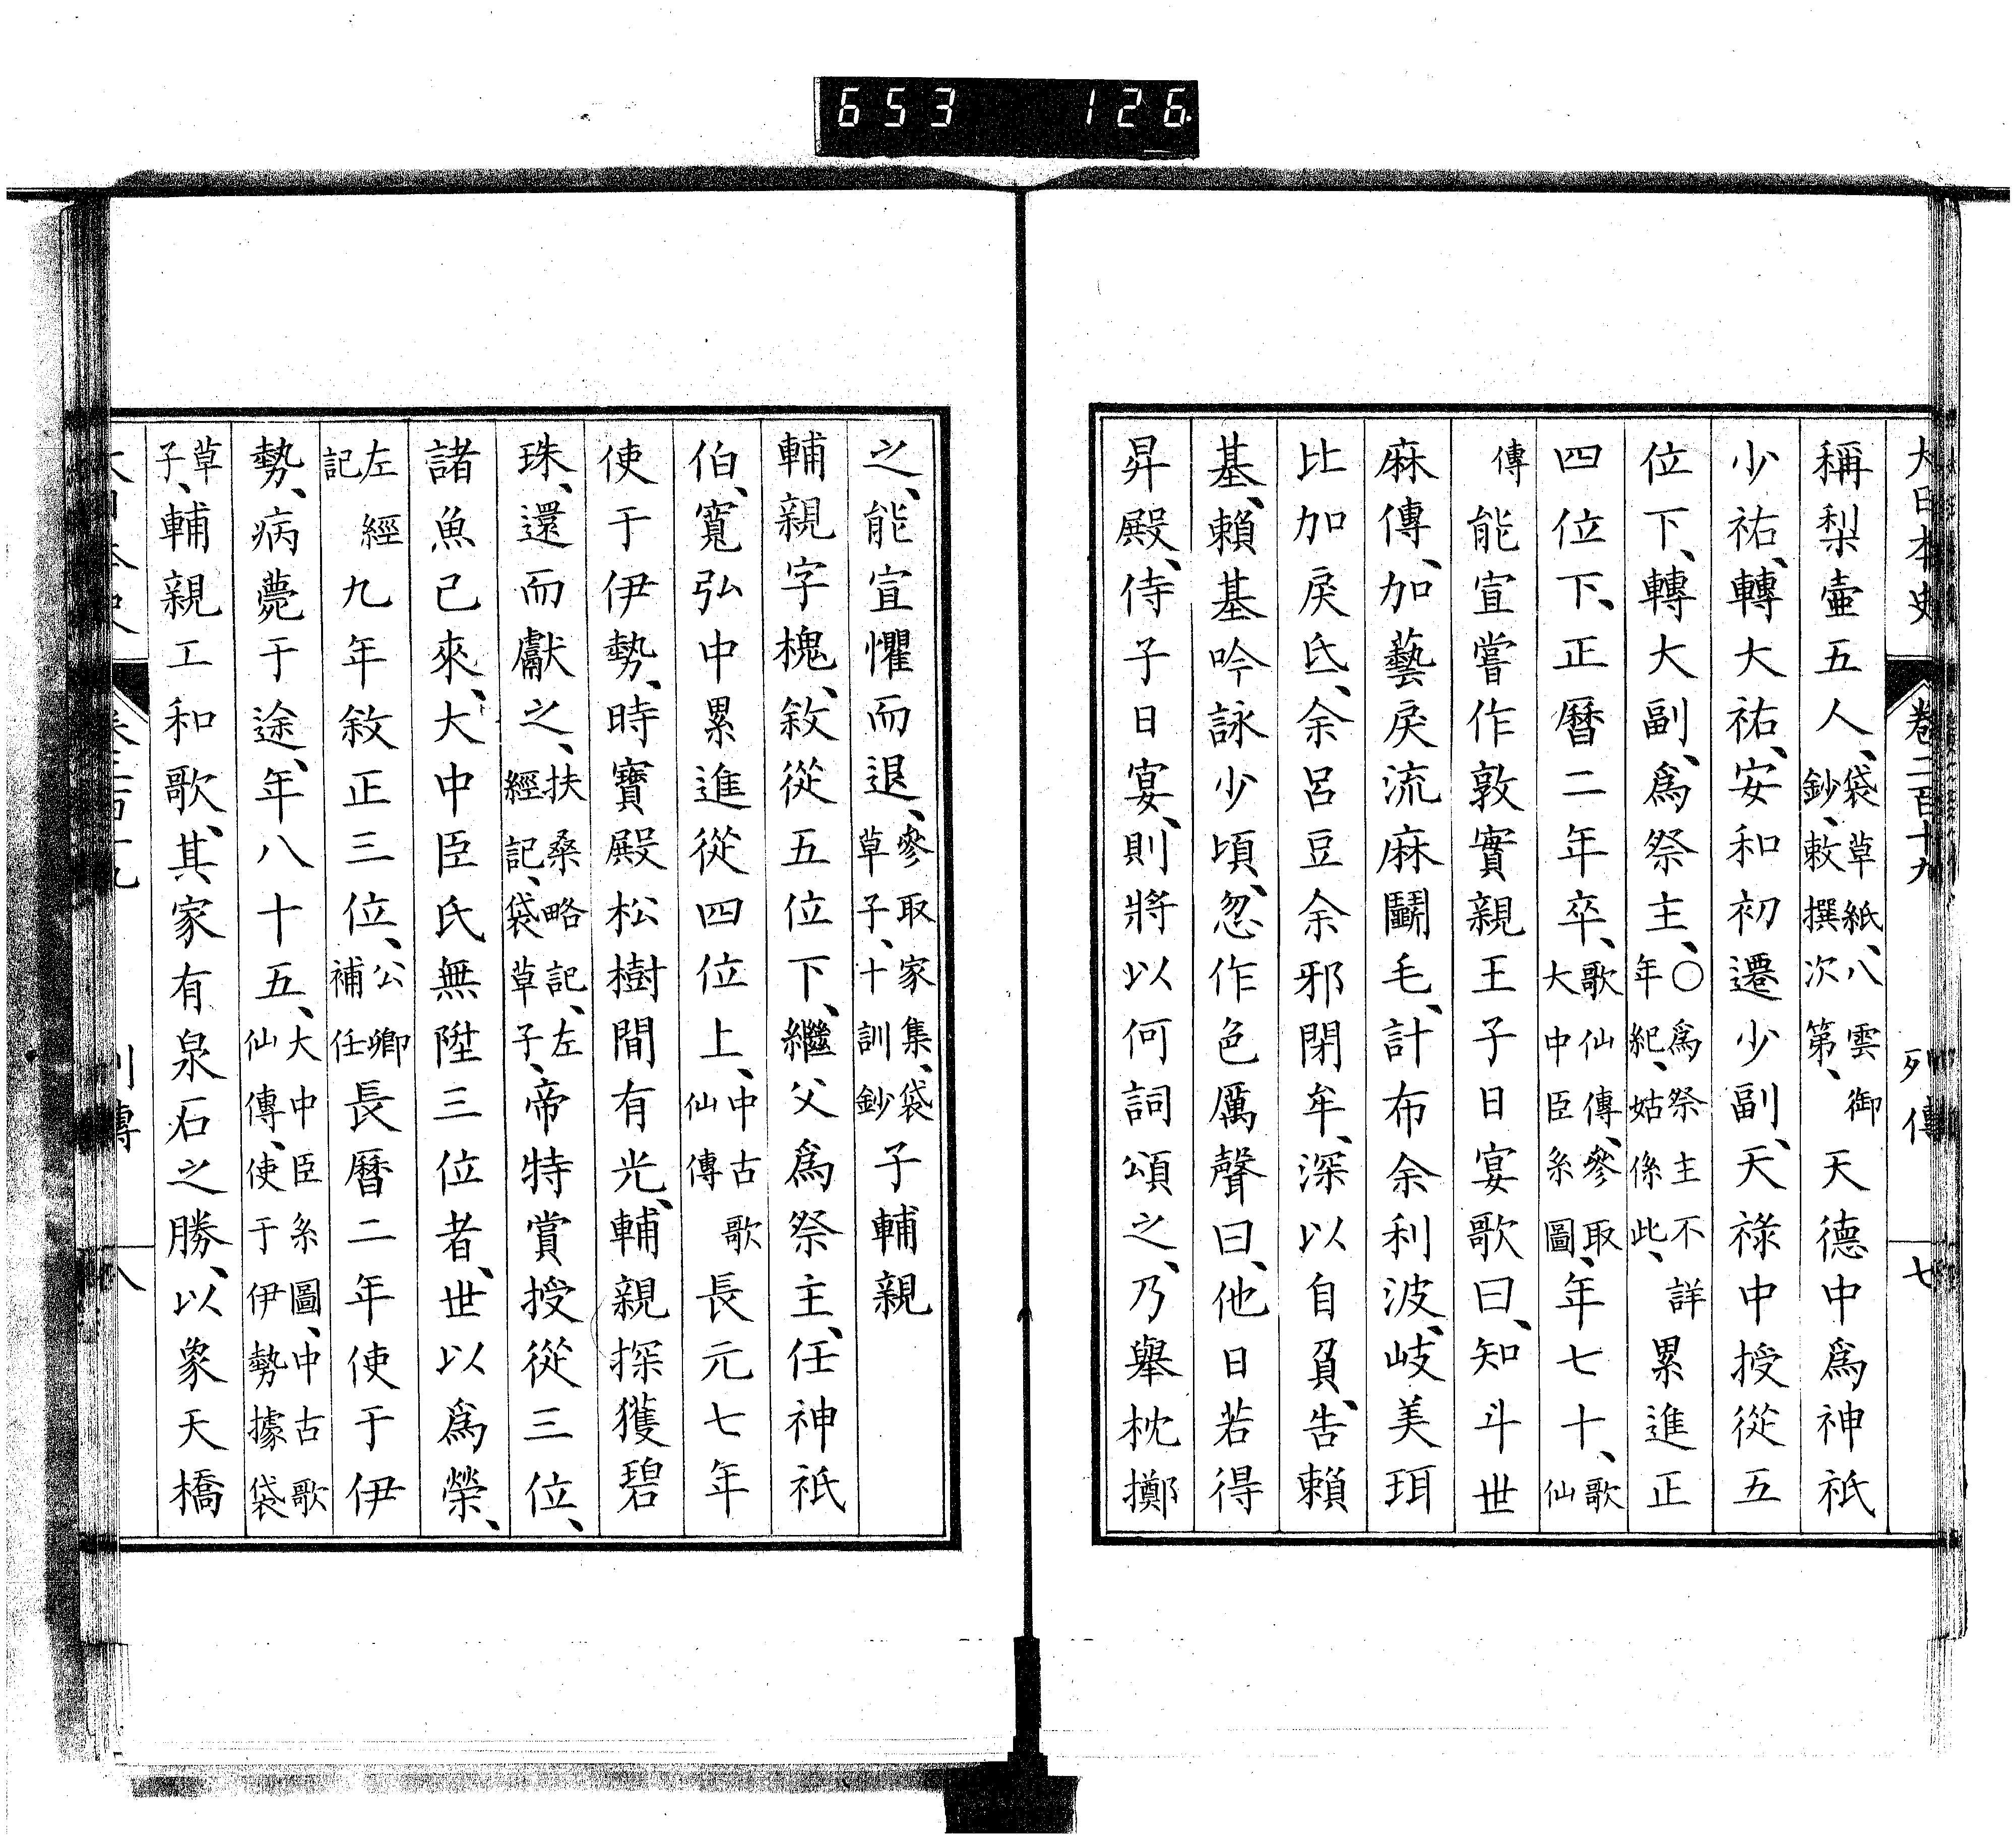 653 126
大日本史 卷二百十九 列傳 七
稱梨壷五人、袋草紙、八雲御鈔、敕撰次第、天德中爲神祇
少祐、轉大祐、安和初遷少副、天祿中授從五
位下、轉大副、爲祭主、〇爲祭主不詳年紀、姑係此、累進正
四位下、正曆二年卒、歌仙傳、參取大中臣系圖、年七十、歌仙
傳能宣嘗作敦實親王子日宴歌曰、知斗世
麻傳、加藝戾流麻鬭毛、計布余利波、岐美珥
比加戾氐、余呂豆余邪閉牟、深以自負、告賴
基、賴基吟詠少頃、忽作色厲聲曰、他日若得
昇殿、侍子日宴、則將以何詞頌之、乃舉枕擲
之、能宣懼而退、參取家集、袋草子、十訓鈔子輔親
輔親字槐、敘從五位下、繼父爲祭主、任神祇
伯、寬弘中累進從四位上、中古歌仙傳長元七年
使于伊勢、時寶殿松樹間有光、輔親探獲碧
珠、還而獻之、扶桑略記、左經記、袋草子、帝特賞授從三位、
諸魚已來、大中臣氏無陞三位者、世以爲榮、
左經記九年敘正三位、公卿補任長曆二年使于伊
勢、病薨于途、年八十五、大中臣系圖、中古歌仙傳、使于伊勢據袋
草子、輔親工和歌、其家有泉石之勝、以象天橋
列傳 八